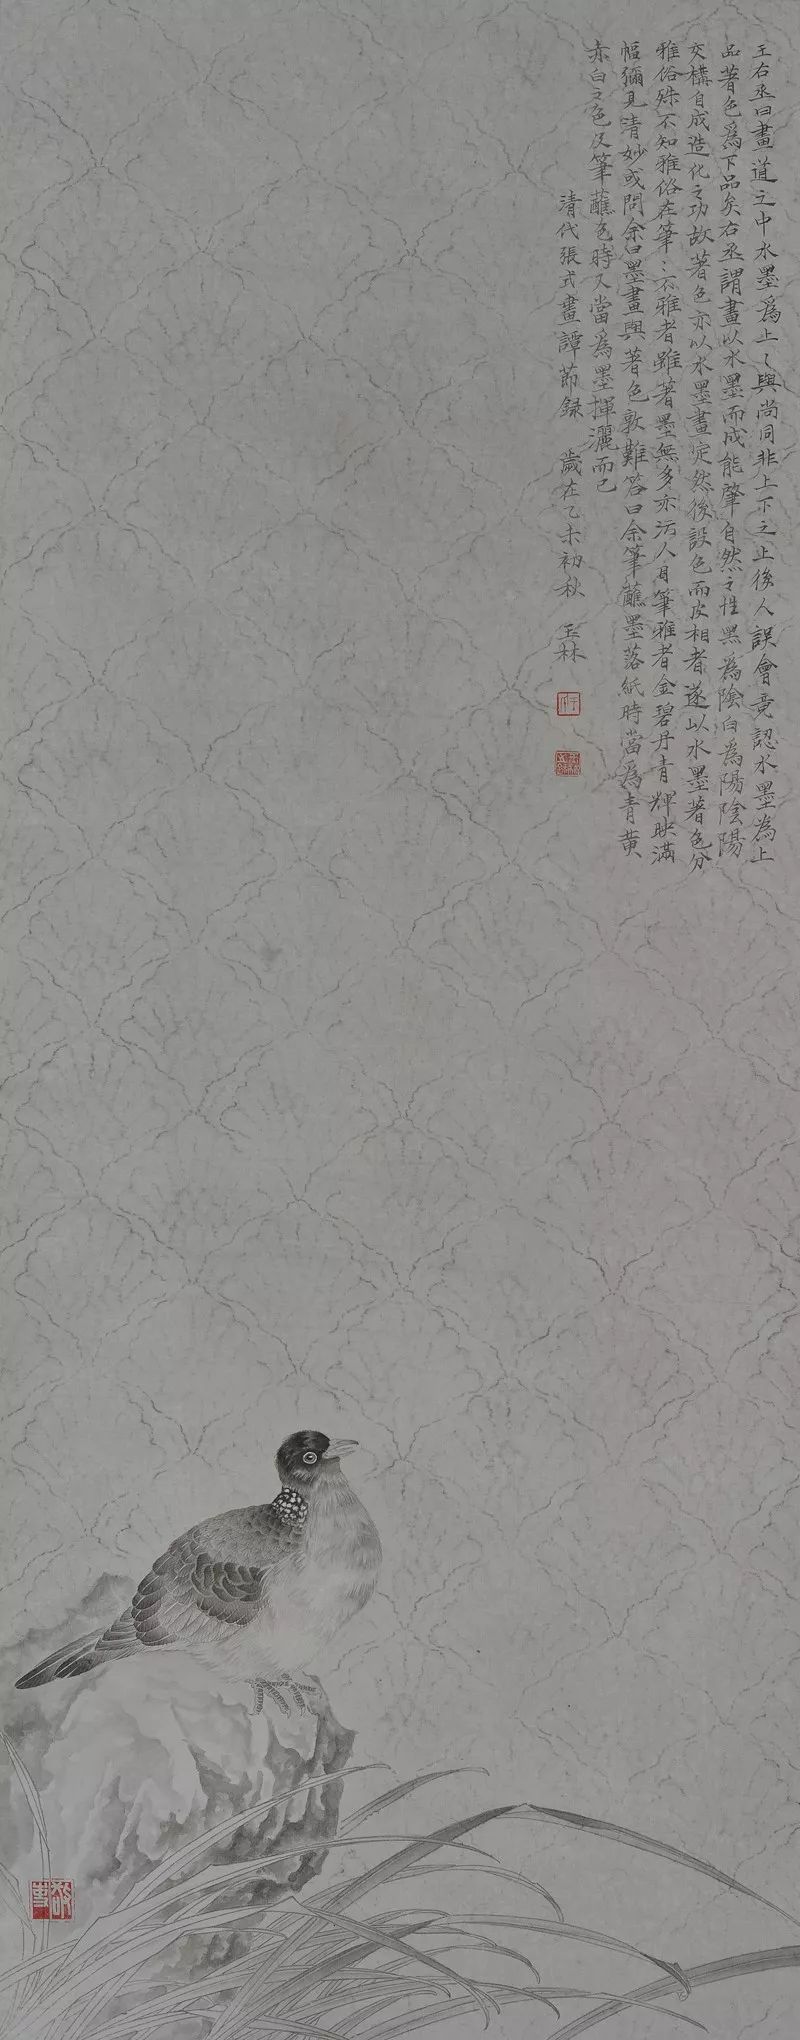 王右丞曰畫道之中水墨爲上〻與尚同非上下之止後人誤會竟認水墨為上
品著色爲下品矣右丞謂畫以水墨而成能肇自然之性黑為陰白為陽陰陽
交構自成造化之功故著色亦以水墨畫定然後設色而皮相者遂以水墨著色分
雅俗殊不知雅俗在筆〻不雅者雖著墨無多亦污人目筆雅者金碧丹青輝映滿
幅彌見清妙或問余曰墨畫與著色孰難答曰余筆蘸墨落紙時當爲青黄
赤白之色及筆蘸色時又當爲墨揮灑而已
清代張式畫譚節録 歲在乙未初秋 玉林